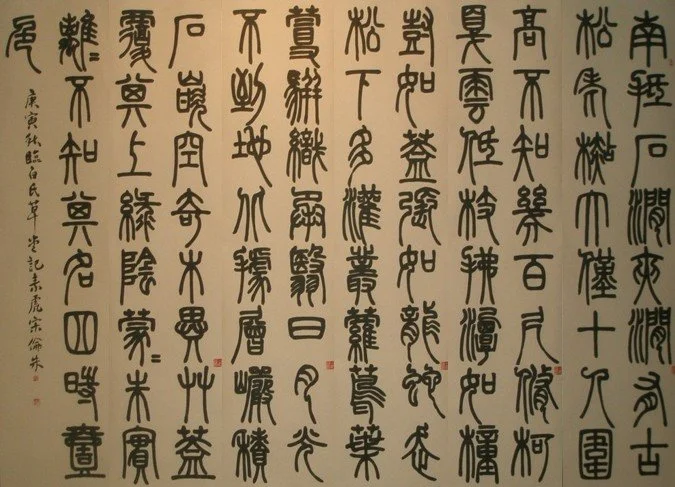 南抵石澗夾澗有古
松老杉大僅十人圍
高不知幾百尺脩柯
戛雲低枝拂潭如橦
尌如蓋張如龍蛇走
松下多灌叢蘿蔦葉
蔓駢織承翳日月光
不到地北據層巖積
石嵌空奇木異艸蓋
覆其上綠陰蒙〻朱實
離〻不知其名四時壹
色
庚寅秋臨白氏草堂記 虎宋倫